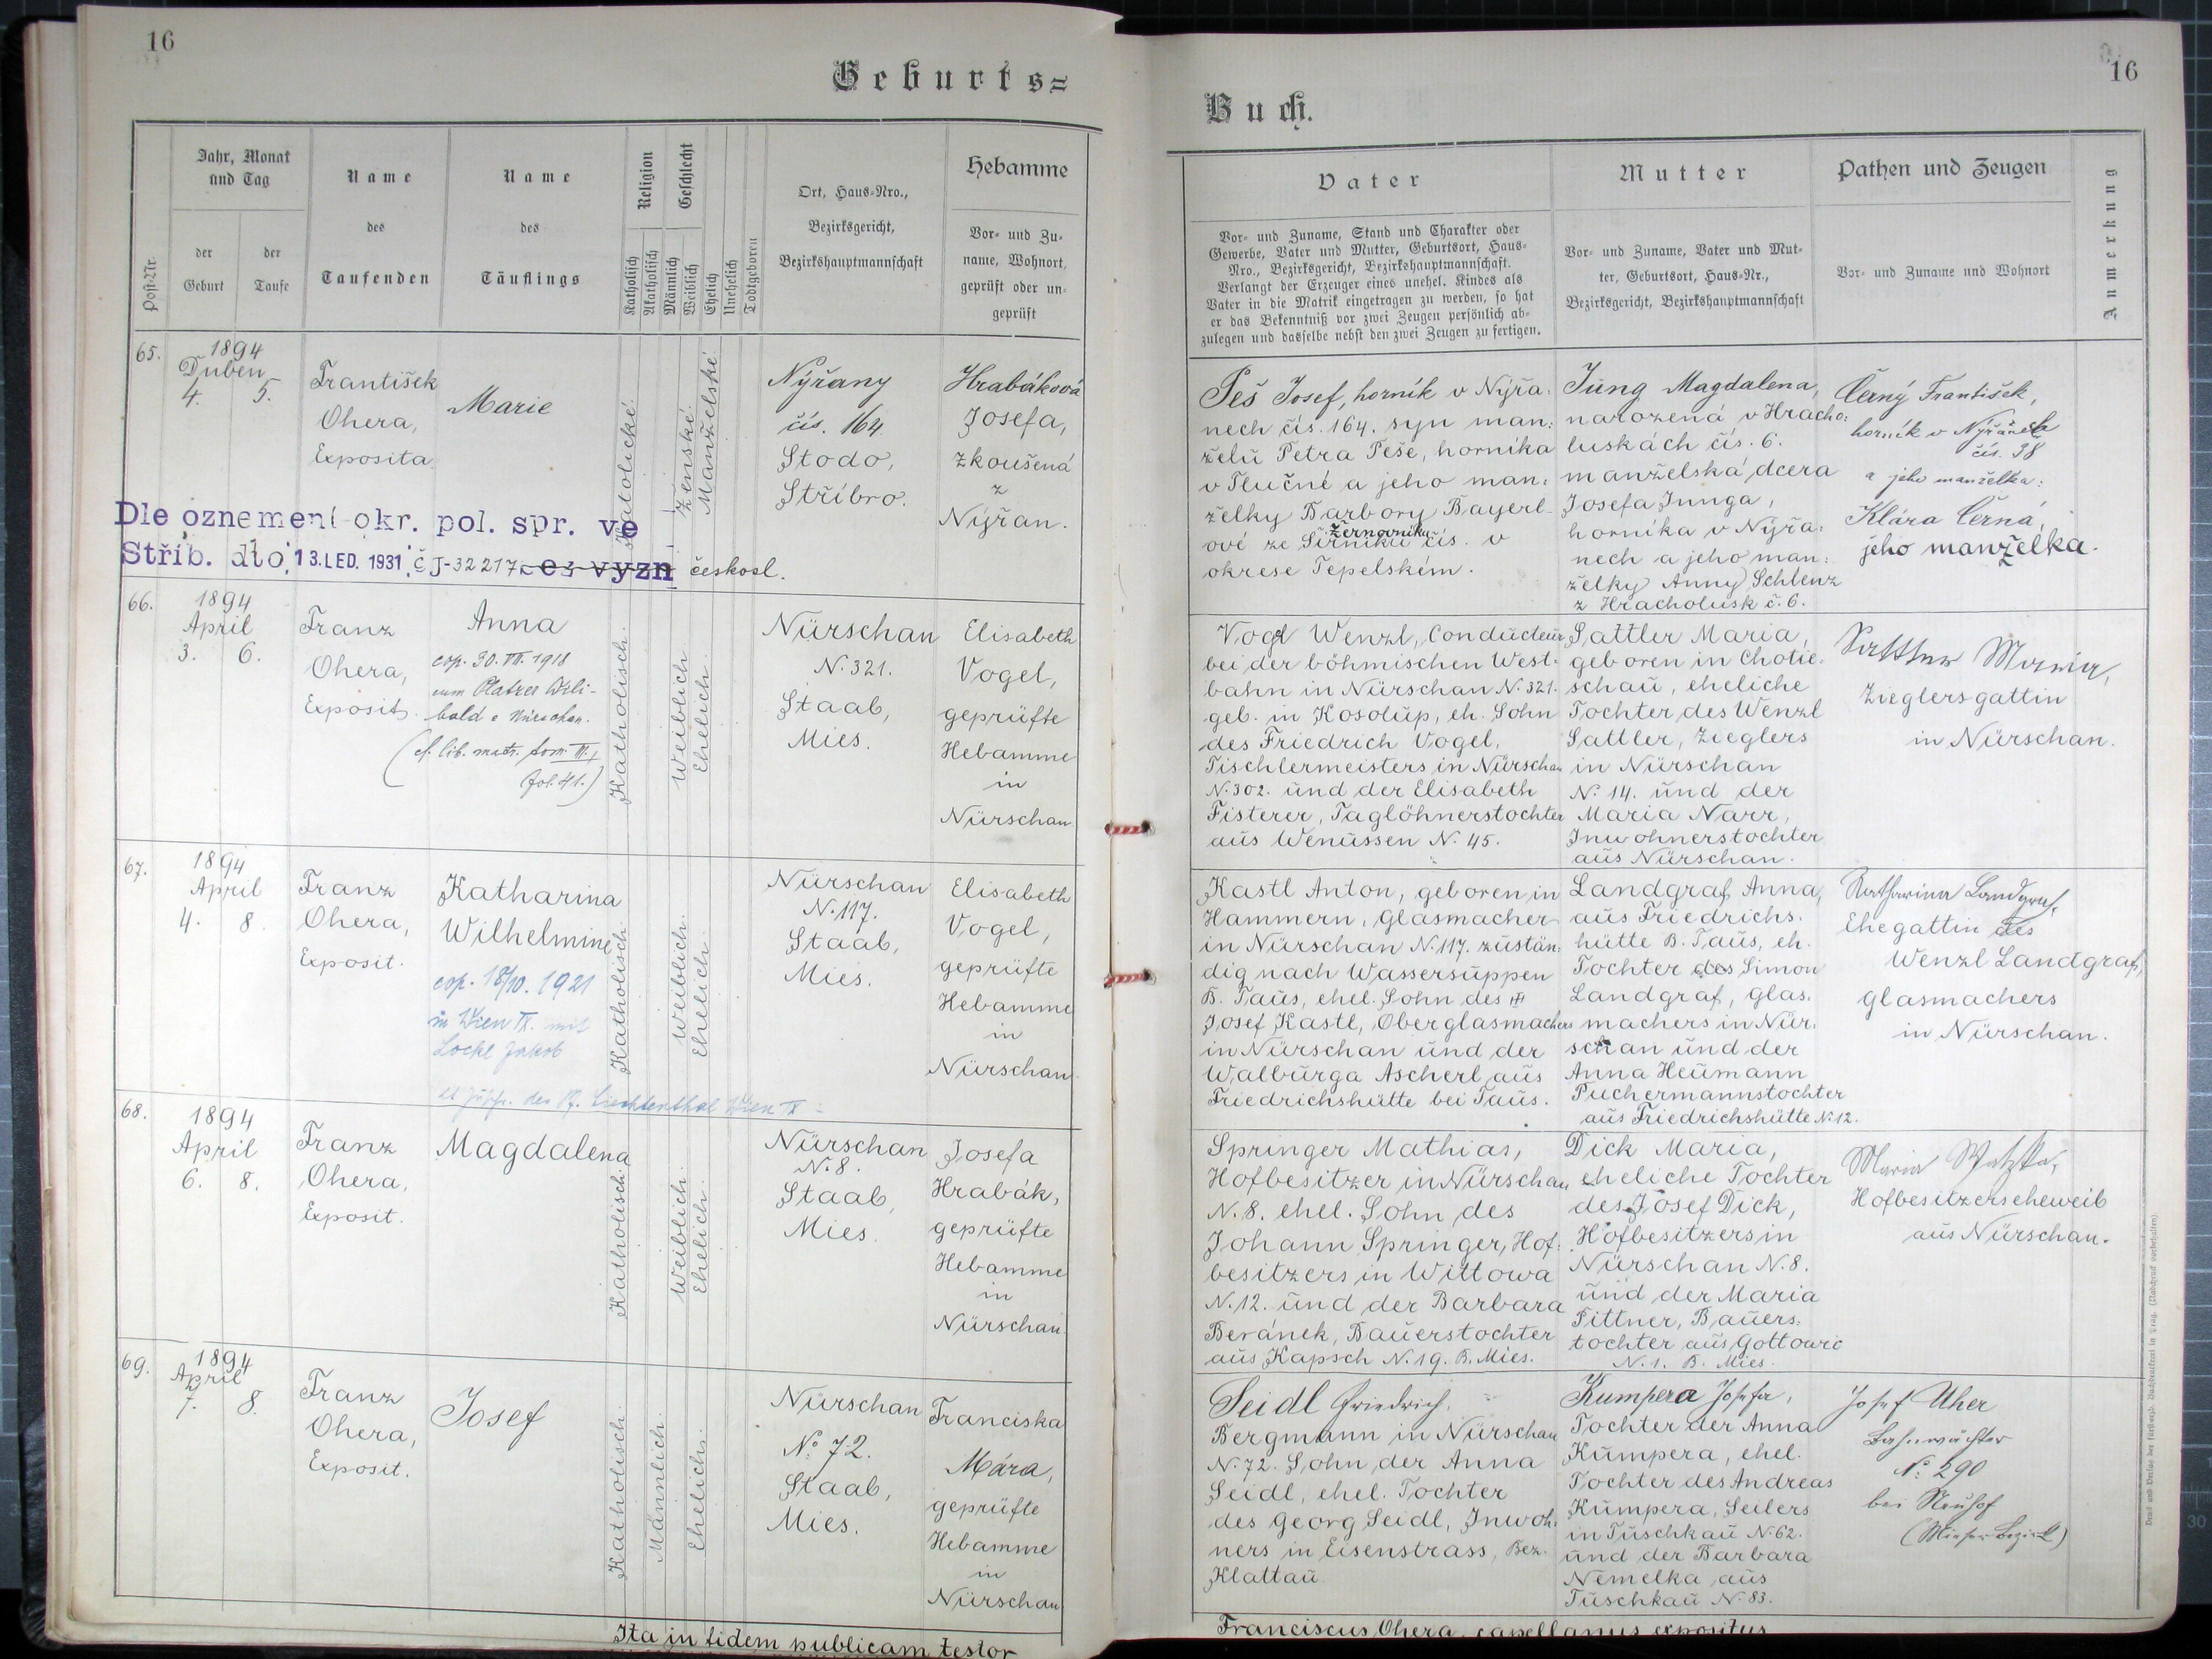 16
Geburts=
Jahr, Monat
und Tag
der
Geburt
der
Taufe
Post-Nr.
Name
des
Taufenden
Name
des
Täuflings
Religion
Katholisch
Akatholisch
Geschlecht
Männlich
Weiblich
Ehelich
Unehelich
Todtgeboren
Ort, Haus-Nro.,
Bezirksgericht,
Bezirkshauptmannschaft
Hebamme
Vor- und Zu-
name, Wohnort,
geprüft oder un-
geprüft
65.
1894
Duben
4. 5.
František
Ohera,
Exposita
Marie
Katolické.
Ženské.
Manželské
Nýřany
čís. 164
Stodo,
Stříbro.
Hrabáková
Josefa,
zkoušená
z
Nýřan.
Dle oznemení okr. pol. spr. ve
Stříb. dto 13. LED. 1931 č J-32217 bez vyzn českosl.
66.
1894
April
3. 6.
Franz
Ohera,
Exposit.
Anna
cop. 30. VII. 1918
cum Platzer Wili-
bald e Nürschan.
(cf. lib. matr. tom. III.,
fol. 41.)
Katholisch.
Weiblich
Ehelich.
Nürschan
N. 321.
Staab,
Mies.
Elisabeth
Vogel,
geprüfte
Hebamme
in
Nürschan
67.
1894
April
4. 8.
Franz
Ohera,
Exposit.
Katharina
Wilhelmine
cop. 18/10. 1921
in Wien IX. mit
Lockl Jakob
lt Zuschr. des Pf. Liechtenthal Wien IX
Katholisch.
Weiblich.
Ehelich.
Nürschan
N. 117.
Staab,
Mies.
Elisabeth
Vogel,
geprüfte
Hebamme
in
Nürschan.
68.
1894
April
6. 8.
Franz
Ohera,
Exposit.
Magdalena
Katholisch.
Weiblich.
Ehelich.
Nürschan
N. 8.
Staab,
Mies.
Josefa
Hrabák,
geprüfte
Hebamme
in
Nürschan.
69.
1894
April
7. 8.
Franz
Ohera,
Exposit.
Josef
Katholisch.
Männlich.
Ehelich.
Nürschan
No. 72.
Staab,
Mies.
Franciska
Mára,
geprüfte
Hebamme
in
Nürschan
Ita in fidem publicam testor
16
Buch.
Vater
Vor- und Zuname, Stand und Charakter oder
Gewerbe, Vater und Mutter, Geburtsort, Haus-
Nro., Bezirksgericht, Bezirkshauptmannschaft.
Verlangt der Erzeuger eines unehel. Kindes als
Vater in die Matrik eingetragen zu werden, so hat
er das Bekenntniß vor zwei Zeugen persönlich ab-
zulegen und dasselbe nebst den zwei Zeugen zu fertigen.
Mutter
Vor- und Zuname, Vater und Mut-
ter, Geburtsort, Haus-Nr.,
Bezirksgericht, Bezirkshauptmannschaft
Pathen und Zeugen
Vor- und Zuname und Wohnort
Anmerkung
Peš Josef, horník v Nýřa-
nech čís. 164. syn man-
želů Petra Peše, horníka
v Tlučné a jeho man-
želky Barbory Bayerl-
Žernovníku
ové ze Sirníku čís. v
okrese Tepelském.
Jung Magdalena,
narozená v Hracho-
luskách čís. 6.
manželská dcera
Josefa Junga,
horníka v Nýřa-
nech a jeho man-
želky Anny Schlenz
z Hracholusk č. 6.
Černý František,
horník v Nýřanech
čís. 38
a jeho manželka:
Klára Černá,
jeho manželka.
Vogl Wenzl, Conducteur
bei der böhmischen West-
bahn in Nürschan N. 321.
geb. in Kosolup, eh. Sohn
des Friedrich Vogel,
Tischlermeisters in Nürschan
N. 302. und der Elisabeth
Fisterer, Taglöhnerstochter
aus Wenussen N. 45.
Sattler Maria,
geboren in Chotie-
schau, eheliche
Tochter des Wenzl
Sattler, Zieglers
in Nürschan
N. 14. und der
Maria Narr,
Inwohnerstochter
aus Nürschan.
Sattler Maria,
Zieglersgattin
in Nürschan.
Kastl Anton, geboren in
Hammern, Glasmacher
in Nürschan N. 117. zustän-
dig nach Wassersuppen
B. Taus, ehel. Sohn des
Josef Kastl, Oberglasmachers
in Nürschan und der
Walburga Ascherl aus
Friedrichshütte bei Taus.
Landgraf Anna,
aus Friedrichs-
hütte B. Taus, eh.
Tochter des Simon
Landgraf, Glas-
machers in Nür-
schan und der
Anna Heumann
Puchermannstochter
aus Friedrichshütte N. 12.
Katharina Landgraf,
Ehegattin des
Wenzl Landgraf,
Glasmachers
in Nürschan.
Springer Mathias,
Hofbesitzer in Nürschan
N. 8. ehel. Sohn des
Johann Springer, Hof-
besitzers in Wittowa
N. 12. und der Barbara
Beránek, Bauerstochter
aus Kapsch N. 19. B. Mies.
Dick Maria,
eheliche Tochter
des Josef Dick,
Hofbesitzers in
Nürschan N. 8.
und der Maria
Pittner, Bauers-
tochter aus Gottowic
N. 1. B. Mies.
Maria Watzka,
Hofbesitzerseheweib
aus Nürschan.
Seidl Friedrich,
Bergmann in Nürschan
N. 72. Sohn der Anna
Seidl, ehel. Tochter
des Georg Seidl, Inwoh-
ners in Eisenstrass, Bez.
Klattau
Kumpera Josefa,
Tochter der Anna
Kumpera, ehel.
Tochter des Andreas
Kumpera, Seilers
in Tuschkau N. 62.
und der Barbara
Nemelka aus
Tuschkau N. 83.
Josef Uher
Bahnwächter
No. 290
bei Neuhof
(Mieser Bezirk)
Druck und Verlag der fürsterzb. Buchdruckerei in Prag. (Nachdruck vorbehalten).
Franciscus Ohera, capellanus expositus